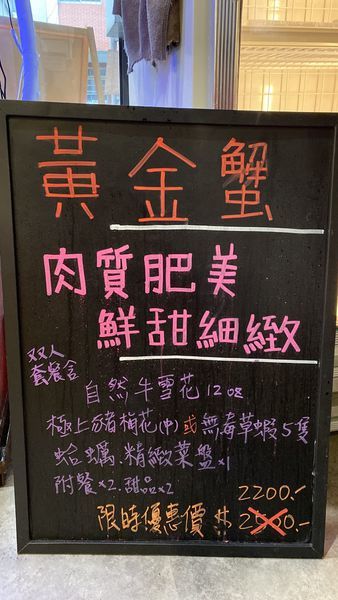 黃金蟹
肉質肥美
鮮甜細緻
双人
套餐含
自然牛雪花12oz
極上豬梅花(中)或無毒草蝦5隻
蛤蠣.精緻菜盤x1
附餐x2.甜品x2
2200.-
限時優惠價 $2500.-